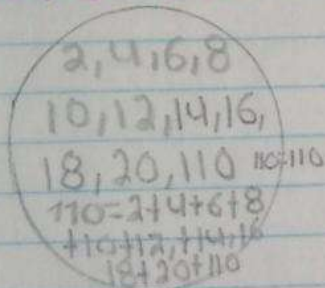 2,4,6,8
10,12,14,16,
18,20,110 110=110
110=2+4+6+8
+10+12,+14,16
18+20+110